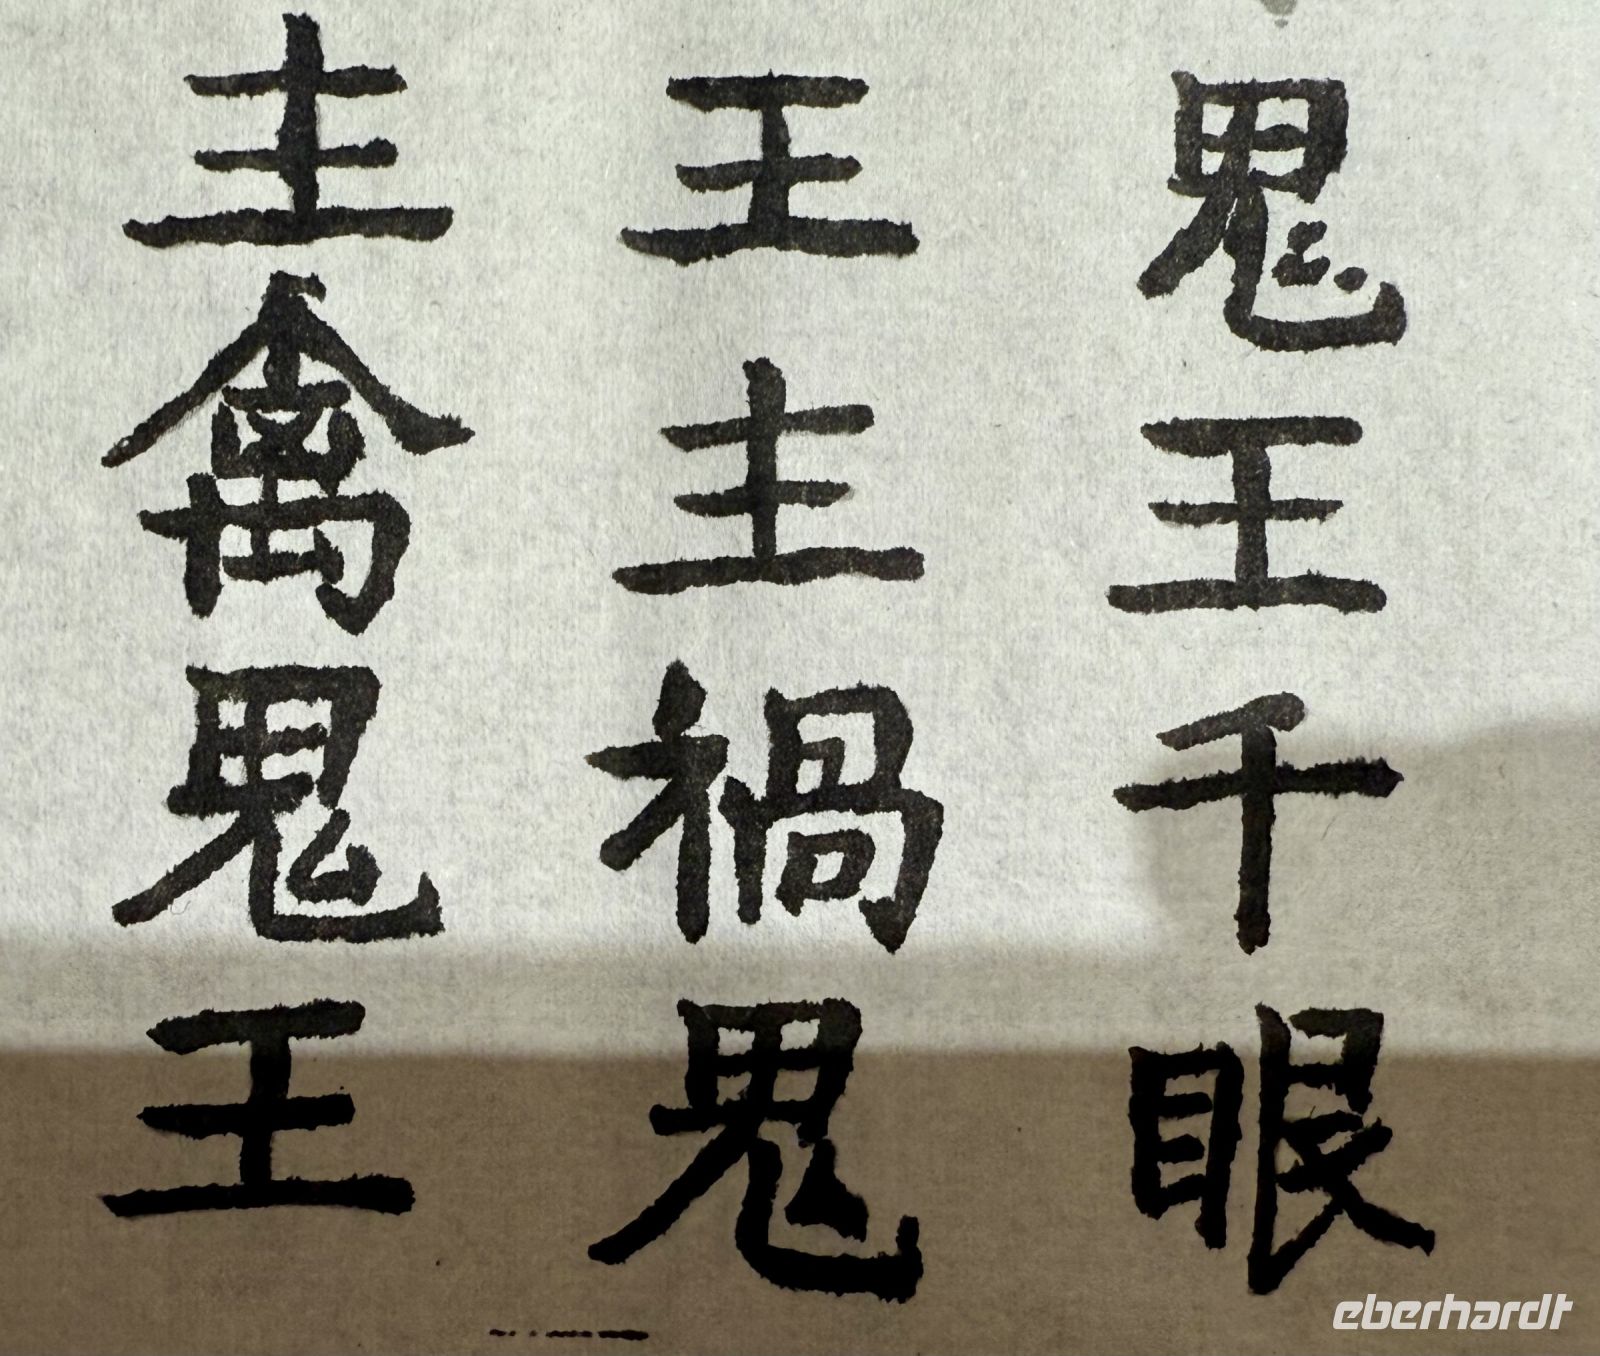 鬼王千眼
王主禍鬼
主禽鬼王
eberhardt